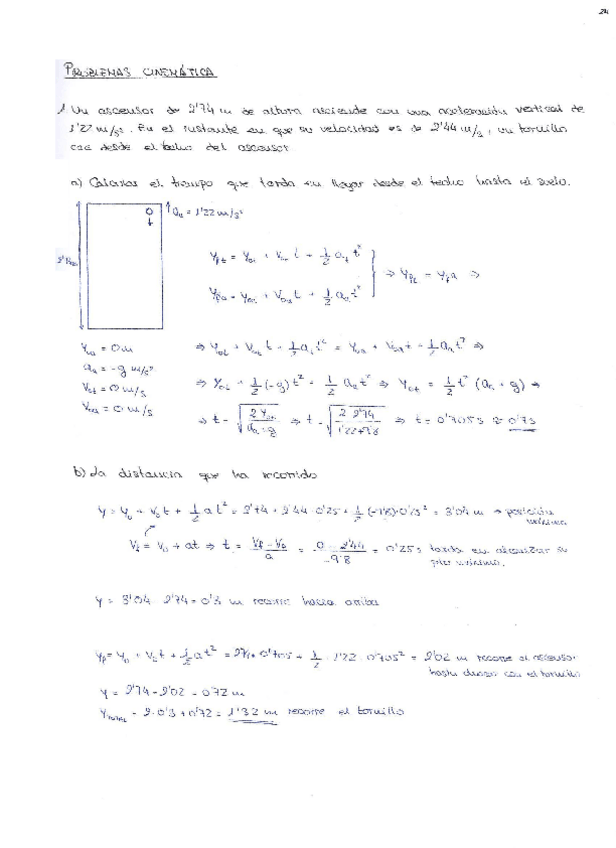 PROBLEMAS CINEMÁTICA
1. Un ascensor de 2'74 m de altura asciende con una aceleración vertical de
1'22 m/s². En el instante en que su velocidad es de 2'44 m/s, un tornillo
cae desde el techo del ascensor.
a) Calcular el tiempo que tarda en llegar desde el techo hasta el suelo.
a_a = 1'22 m/s²
y_ft = y_ot + v_ot t + 1/2 a_t t²
y_fa = y_oa + v_oa t + 1/2 a_a t²
⇒ y_ft = y_fa ⇒
y_oa = 0 m
a_a = -g m/s²
v_ot = 0 m/s
v_oa = 0 m/s
⇒ y_ot + v_ot t + 1/2 a_t t² = y_oa + v_oa t + 1/2 a_a t² ⇒
⇒ y_ot + 1/2 (-g) t² = 1/2 a_a t² ⇒ y_ot = 1/2 t² (a_a + g) ⇒
⇒ t = √(2 y_ot / a_a + g) ⇒ t = √(2 · 2'74 / 1'22 + 9'8) ⇒ t = 0'705 s ≈ 0'7 s
b) La distancia que ha recorrido
y = y_o + v_o t + 1/2 a t² = 2'74 + 2'44 · 0'25 + 1/2 (-9'8) · 0'25² = 3'04 m → posición máxima
v_f = v_o + at ⇒ t = v_f - v_o / a = 0 - 2'44 / -9'8 = 0'25 s tarda en alcanzar su
y = 3'04 - 2'74 = 0'3 m recorre hacia arriba
y_f = y_o + v_o t + 1/2 a t² = 2'44 · 0'705 + 1/2 · 1'22 · 0'705² = 2'02 m recorre el ascensor
hasta chocar con el tornillo
y = 2'74 - 2'02 = 0'72 m
y_TOTAL = 2 · 0'3 + 0'72 = 1'32 m recorre el tornillo